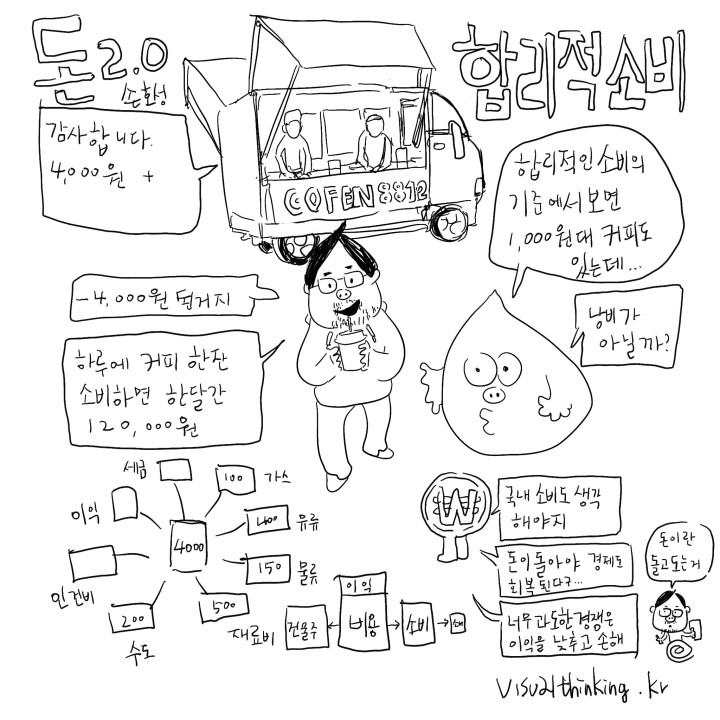 돈 2.0
손환성
합리적소비
감사합니다.
4,000원 +
COFEN 8812
합리적인 소비의
기준에서 보면
1,000원대 커피도
있는데...
낭비가
아닐까?
-4,000원 뭘거지
하루에 커피 한잔
소비하면 한달간
120,000원
세금
100 가스
이익
400 유류
4000
150 물류
인건비
200
수도
500
재료비
이익
건물주 비용 소비 소비
W
국내 소비도 생각
해야지
돈이 돌아야 경제도
회복된다구...
너무 과도한 경쟁은
이익을 낮추고 손해
돈이란
돌고도는거
visualthinking.kr